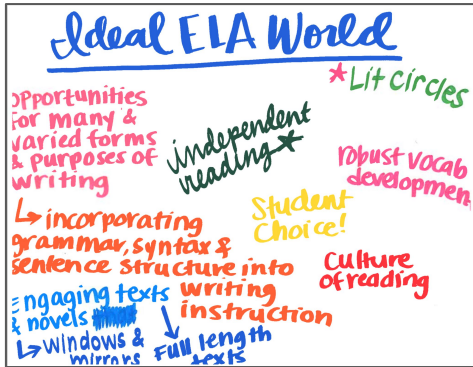 Ideal ELA World
*Lit circles
opportunities
for many &
varied forms
& purposes of
writing
independent
reading*
robust vocab
developmen
Student
Choice!
↳ incorporating
grammar, syntax &
sentence structure into
writing
instruction
Culture
of reading
Engaging texts
& novels
↳ windows &
mirrors
Full length
texts